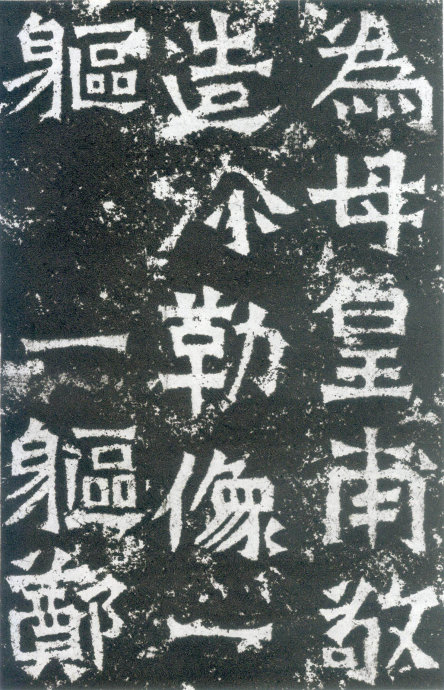 為母皇甫敬
造弥勒像一
軀 一軀鄭